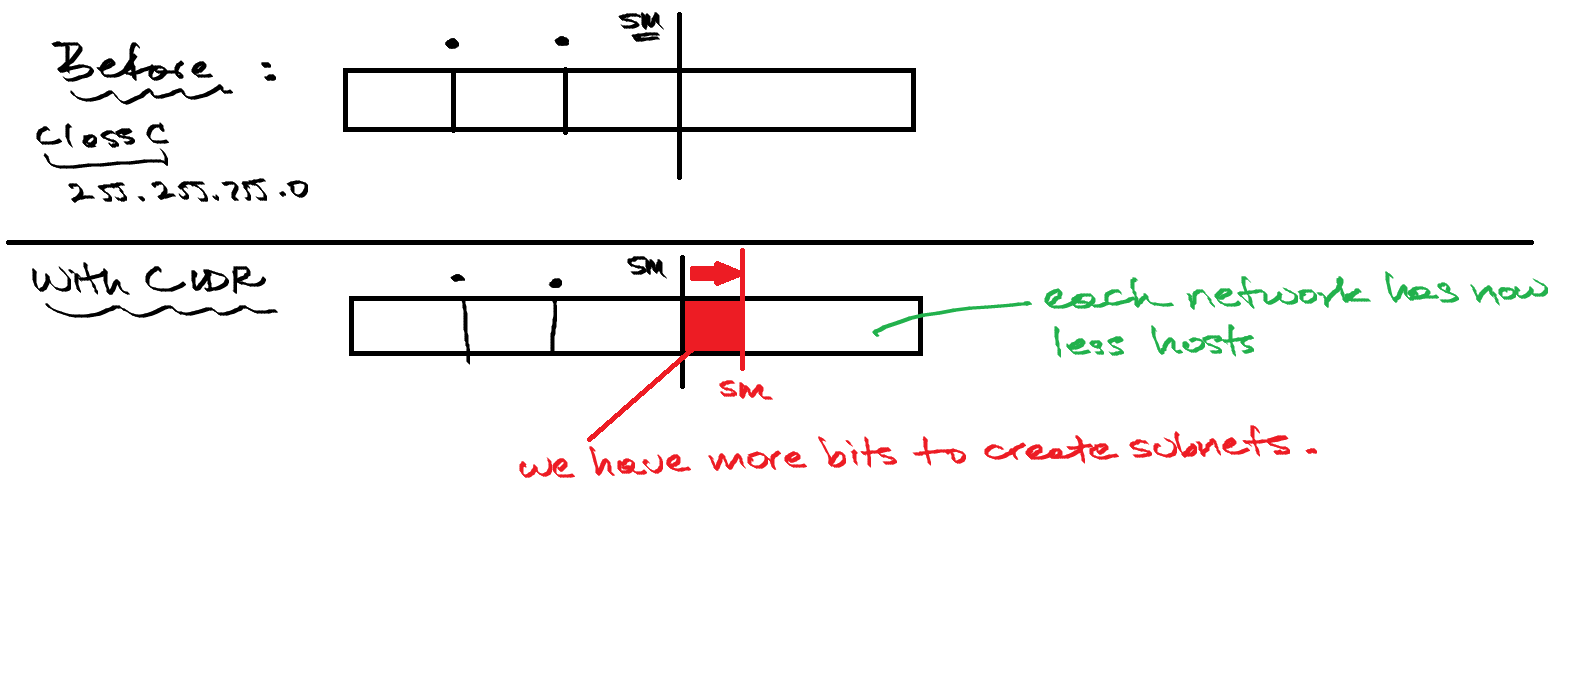 SM
Before :
Class C
255.255.255.0
With CIDR
SM
each network has now
less hosts
SM
we have more bits to create subnets.